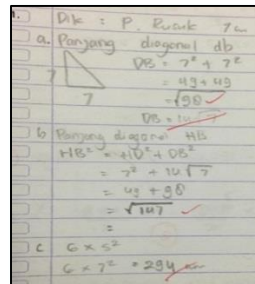 1. Dik : P. Rusuk 7 cm
a. Panjang diagonal db
DB = 7² + 7²
7
= 49 + 49
7
= √98
DB = 14√7
b Panjang diagonal HB
HB² = HD² + DB²
= 7² + 14√7
= 49 + 98
= √147
=
c 6 × s²
6 × 7² = 294